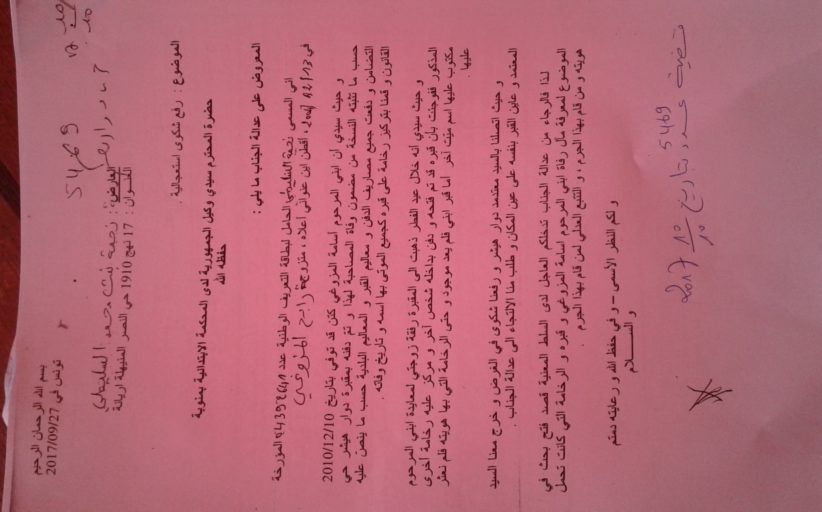 بسم الله الرحمان الرحيم
تونس في 2017/09/27
العارض: نجمية بنت محمد السليطي
العنوان: 17 نهج 1910 حي النصر المنيهلة اريانة
5469
الموضوع: رفع شكوى استعجالية.
حضرة المحترم سيدي وكيل الجمهورية لدى المحكمة الابتدائية بمنوبة
حفظه الله
المعروض على عدالة الجناب ما يلي:
اني المسمى نجمية السليطي الحامل لبطاقة التعريف الوطنية عدد المؤرخة
في أقطن ابن عنواني أعلاه، متزوج
و حيث سيدي ان ابني المرحوم أسامة المزوغي كان قد توفي بتاريخ 2010/12/10
حسب ما تثبته النسخة من مضمون وفاة المصاحبة لهذا و تم دفنه بمقبرة دوار هيشر حي
التضامن و دفعت جميع مصاريف الدفن و معاليم القبر و المعاليم البلدية حسب ما ينص عليه
القانون و قمنا بتركيز رخامة على قبره كجميع الموتى بها اسمه و تاريخ وفاته.
و حيث سيدي أنه خلال عيد الفطر ذهبت الى المقبرة رفقة زوجتي لمعايدة ابني المرحوم
المذكور ففوجئت بأن قبره قد تم فتحه و دفن بداخله شخص آخر و مركز عليه رخامة أخرى
مكتوب عليها اسم ميت آخر أما قبر ابني فلم يعد موجود و حتى الرخامة التي بها هويته فلم نعثر
عليها.
و حيث اتصلنا بالسيد معتمد دوار هيشر و رفعنا شكوى في الغرض و خرج معنا السيد
المعتمد و عاين القبر بنفسه على عين المكان و طلب منا الالتجاء الى عدالة الجناب.
لذا فالرجاء من عدالة الجناب تدخلكم العاجل لدى السلط المعنية قصد فتح بحث في
الموضوع لمعرفة مآل رفاة ابني المرحوم اسامة المزوغي و قبره و الرخامة التي كانت تحمل
هويته و من قام بهذا الجرم، و التتبع العدلي لمن قام بهذا الجرم.
و لكم النظر الأسمى – و في حفظ الله و رعايته دمتم
و الســـلام
قضية عدد 5469
بتاريخ 2017